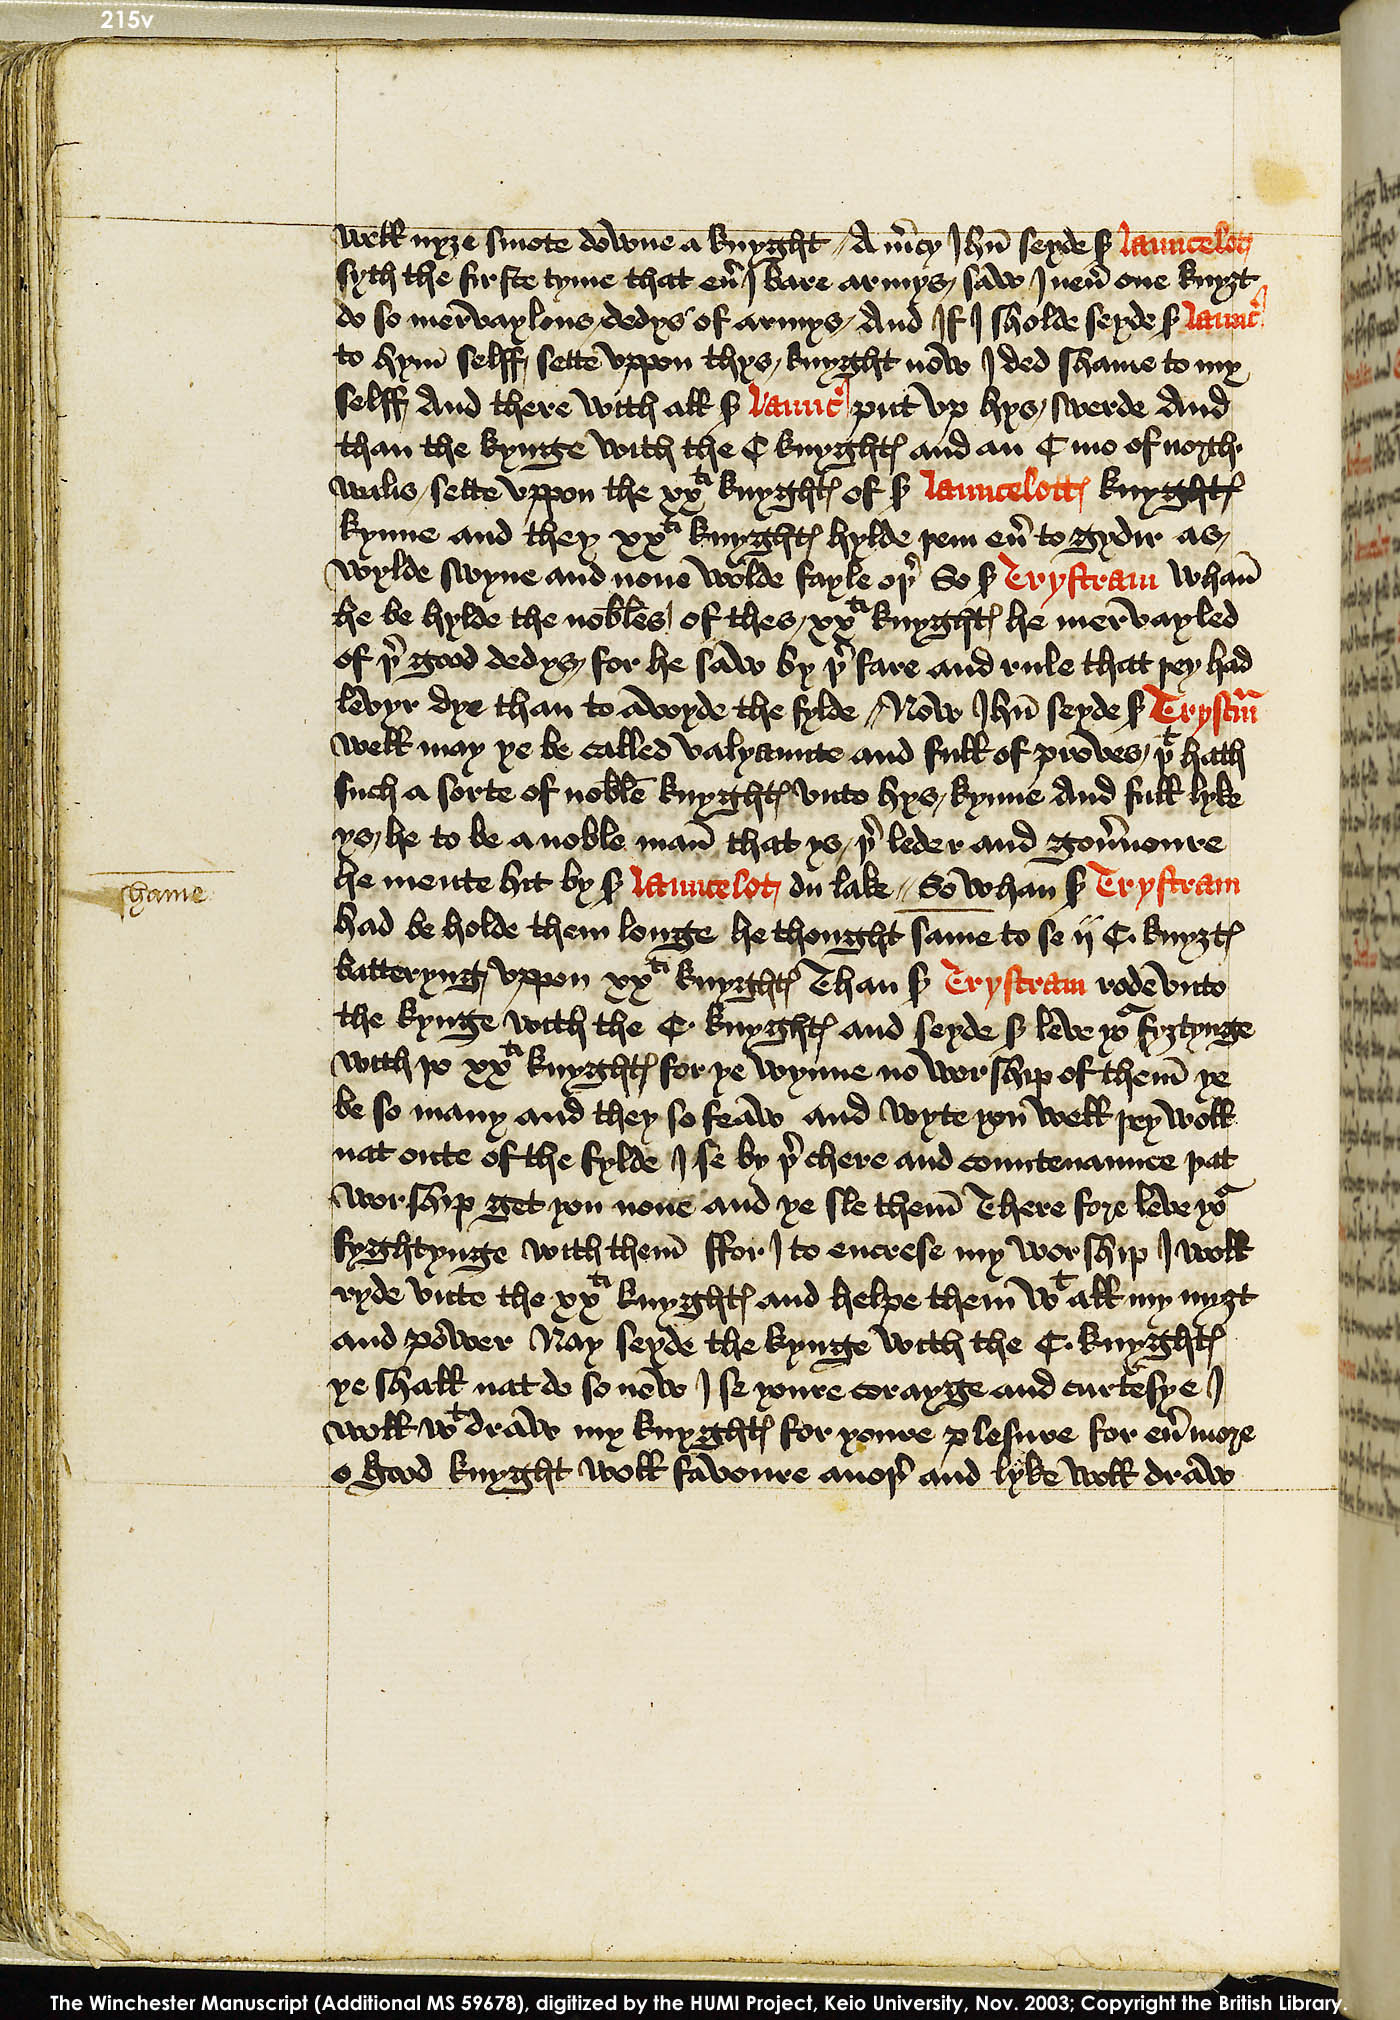 215v
well nyȝe smote downe a knyght // A m̃cy Jhũ seyde sʳ Launcelot
syth the firste tyme that eũ I bare armys, saw I neũ one knyȝt
do so mervaylous dedys of armys, And If I sholde seyde sʳ Launc̃
to hym̃ selff sette vppon thys, knyght now I ded shame to my
selff And there with all sʳ Launc̃ put vp hys, swerde And
than the kynge with the C knyghtꝭ and an C mo of north
walis, sette vppon the xxᵗⁱ knyghtꝭ of sʳ Launcelottꝭ knyghtꝭ
kynne and they xxᵗⁱ knyghtꝭ hylde þem eũ to gydir as,
wylde swyne and none wolde fayle oþ̃ So sʳ Trystram whan̄
he be hylde the nobles of thes, xxᵗⁱ knyghtꝭ he mervayled
of þ̃ good dedys, for he saw by þ̃ fare and rule that þey had
levyr dye than to avoyde the fylde // Now Jhũ seyde sʳ Trystrᵃm
well may ye be called valyaunte and full of proves, þᵗ hath
such a sorte of noble knyghtꝭ vnto hys, kynne And full lyke
ys, he to be a noble man̄ that ys, þ̃ leder and gov̄noure
he mente hit by sʳ Launcelot du lake // So whan sʳ Trystram
shame
had be holde them longe he thought same to se ij C. knyȝtꝭ
batteryng vppon xxᵗⁱ knyghtꝭ Than sʳ Trystram rode vnto
the kynge with the C. knyghtꝭ and seyde sʳ leve yoᵃ fyȝtynge
with þo xxᵗⁱ knyghtꝭ for ye wynne no worship of them̄ ye
be so many and they so feaw and wyte you well þey woll
nat oute of the fylde I se by þ̃ chere and countenaunce þat
worship get you none and ye sle them̄ There fore leve yoᵃ
fyghtynge with them̄ ffor I to encrese my worship I woll
ryde vnto the xxᵗⁱ knyghtꝭ and helpe them wᵗ all my myȝt
and power Nay seyde the kynge with the C. knyghtꝭ
ye shall nat do so now I se youre corayge and curtesye I
woll wᵗ draw my knyghtꝭ for youre plesure for eũmore
o good knyght woll favoure anoþ̃ and lyke woll draw
The Winchester Manuscript (Additional MS 59678), digitized by the HUMI Project, Keio University, Nov. 2003; Copyright the British Library.